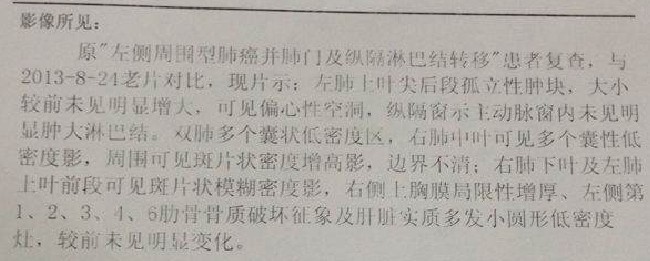 影像所见:
原"左侧周围型肺癌并肺门及纵隔淋巴结转移"患者复查,与
2013-8-24老片对比,现片示:左肺上叶尖后段孤立性肿块,大小
较前未见明显增大,可见偏心性空洞,纵隔窗示主动脉窗内未见明
显肿大淋巴结。双肺多个囊状低密度区,右肺中叶可见多个囊性低
密度影,周围可见斑片状密度增高影,边界不清;右肺下叶及左肺
上叶前段可见斑片状模糊密度影,右侧上胸膜局限性增厚、左侧第
1、2、3、4、6肋骨骨质破坏征象及肝脏实质多发小圆形低密度
灶,较前未见明显变化。